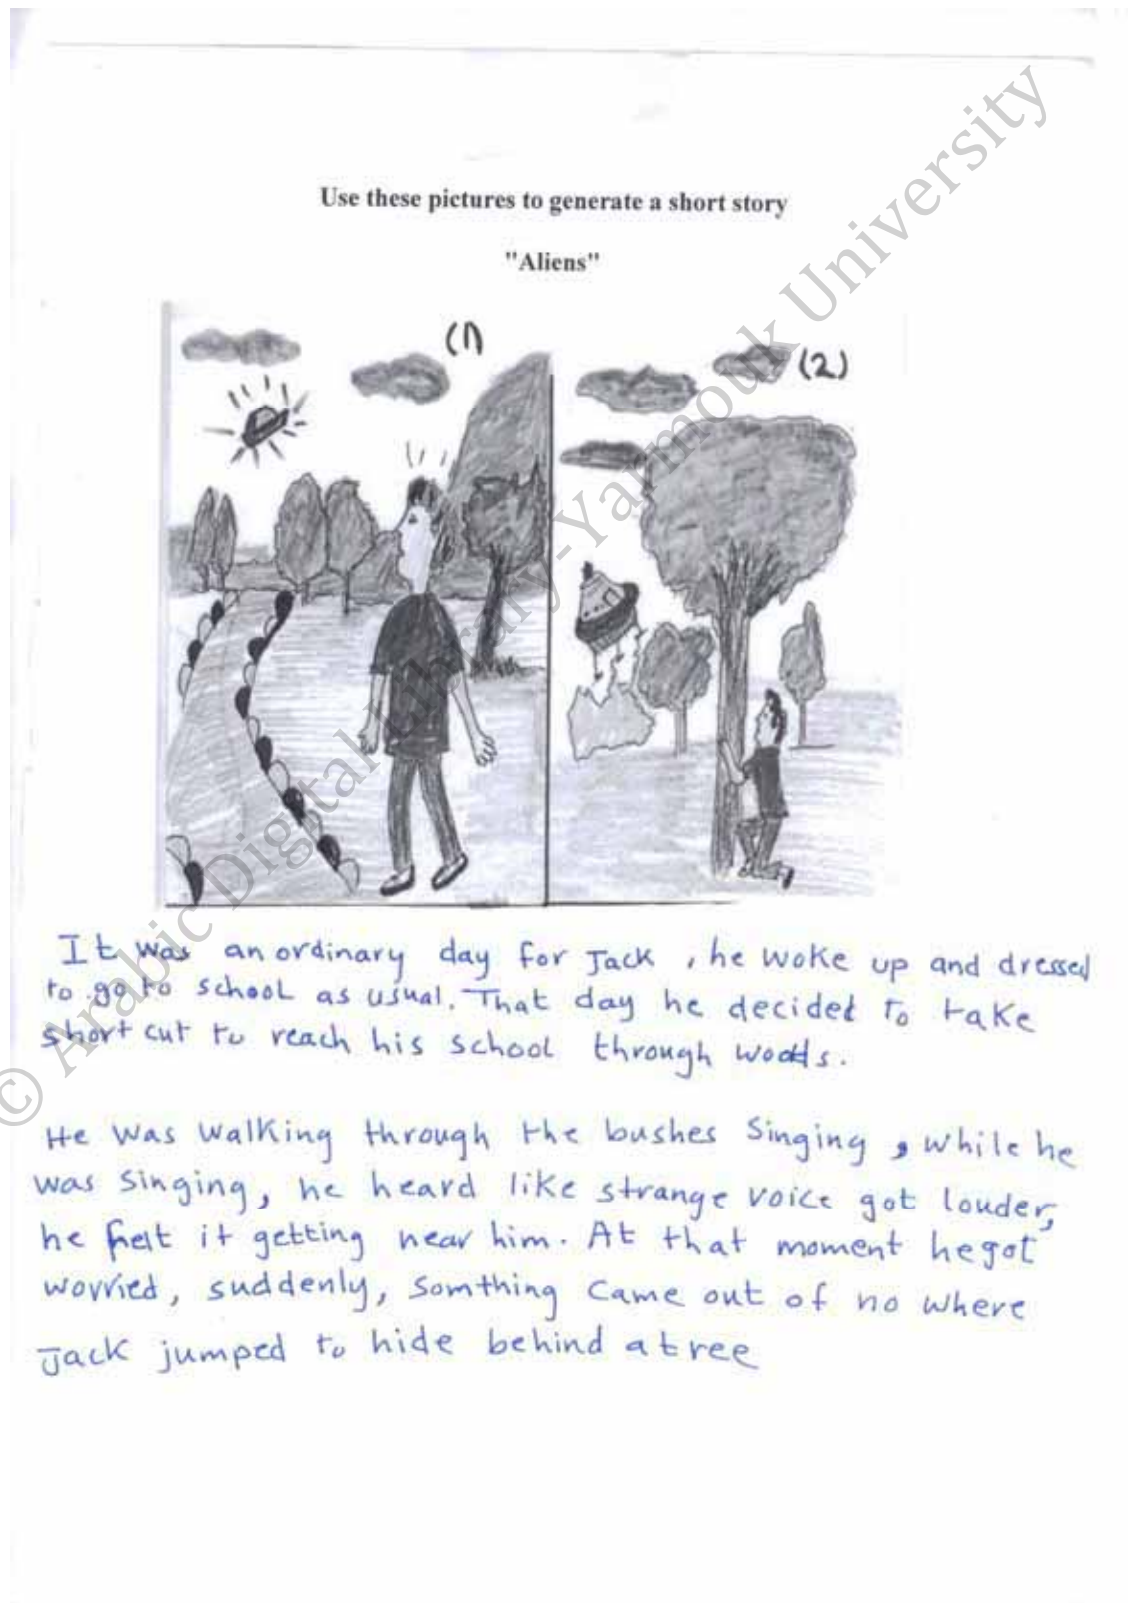 Use these pictures to generate a short story
"Aliens"
(1)
(2)
It was an ordinary day for Jack, he woke up and dressed
to go to school as usual. That day he decided to take
short cut to reach his school through woods.
He was walking through the bushes singing, while he
was singing, he heard like strange voice got louder,
he felt it getting near him. At that moment he got
worried, suddenly, somthing came out of no where
Jack jumped to hide behind a tree
© Arabic Digital Library-Yarmouk University